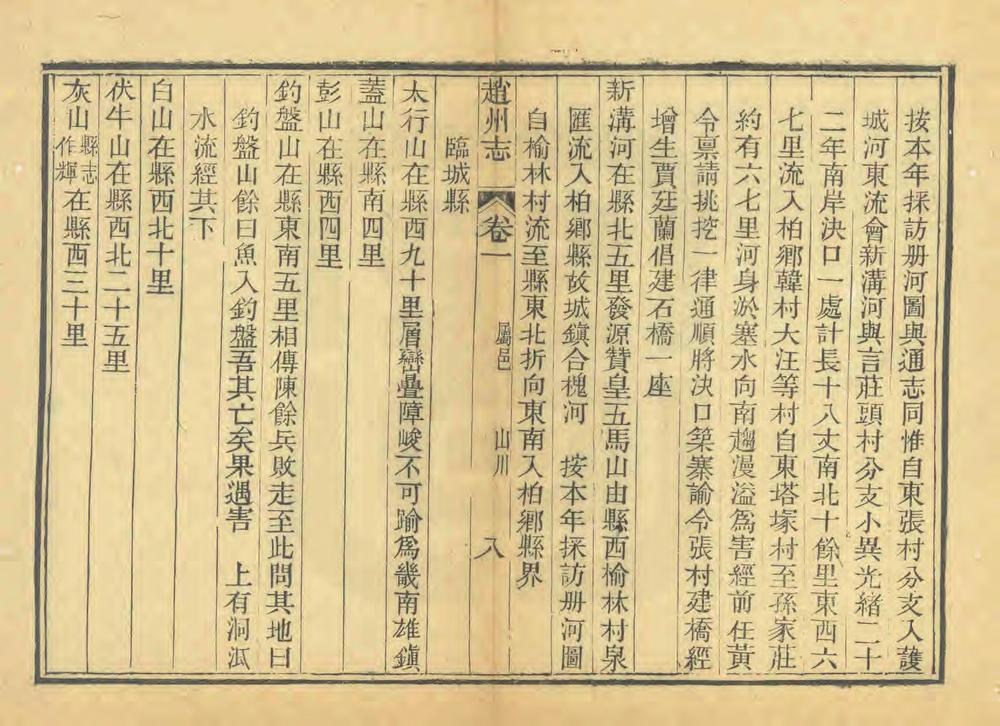 按本年採訪册河圖與通志同惟自東張村分支入護
城河東流會新溝河與言莊頭村分支小異光緒二十
二年南岸決口一處計長十八丈南北十餘里東西六
七里流入柏鄉韓村大汪等村自東塔塚村至孫家莊
約有六七里河身淤塞水向南趨漫溢爲害經前任黃
令禀請挑挖一律通順將決口築寨諭令張村建橋經
增生賈廷蘭倡建石橋一座
新溝河在縣北五里發源贊皇五馬山由縣西榆林村泉
匯流入柏鄉縣故城鎮合槐河 按本年採訪册河圖
自榆林村流至縣東北折向東南入柏鄉縣界
趙州志 卷一 屬邑 山川 八
臨城縣
太行山在縣西九十里層巒疊障峻不可踰爲畿南雄鎮
蓋山在縣南四里
彭山在縣西四里
釣盤山在縣東南五里相傳陳餘兵敗走至此問其地曰
釣盤山餘曰魚入釣盤吾其亡矣果遇害 上有洞泒
水流經其下
白山在縣西北十里
伏牛山在縣西北二十五里
灰山縣志作輝在縣西三十里